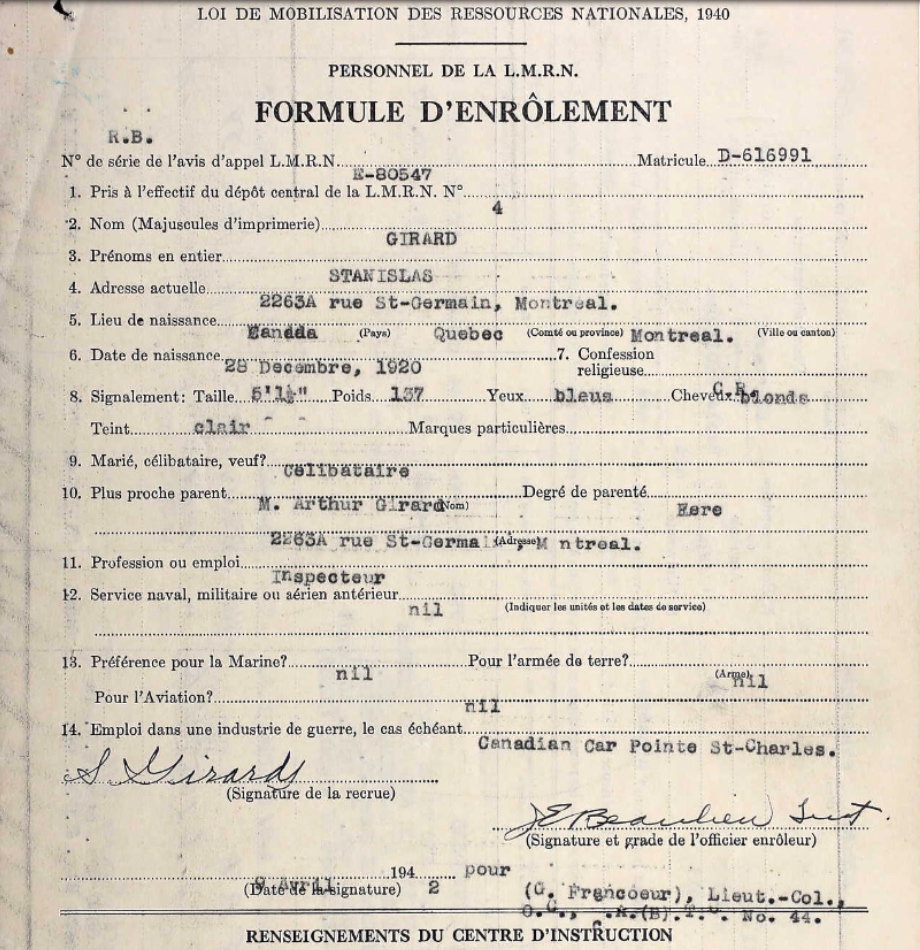 LOI DE MOBILISATION DES RESSOURCES NATIONALES, 1940
PERSONNEL DE LA L.M.R.N.
FORMULE D'ENRÔLEMENT
R.B.
N° de série de l'avis d'appel L.M.R.N. E-80547 Matricule D-616991
1. Pris à l'effectif du dépôt central de la L.M.R.N. N° 4
2. Nom (Majuscules d'imprimerie) GIRARD
3. Prénoms en entier STANISLAS
4. Adresse actuelle 2263A rue St-Germain, Montreal.
5. Lieu de naissance Canada (Pays) Quebec (Comté ou province) Montreal. (Ville ou canton)
6. Date de naissance 28 Decembre, 1920 7. Confession religieuse C.R.
8. Signalement: Taille 5'1½" Poids 137 Yeux bleus Cheveux blonds
Teint clair Marques particulières
9. Marié, célibataire, veuf? Celibataire
10. Plus proche parent M. Arthur Girard (Nom) Degré de parenté
2263A rue St-Germai (Adresse) M ntreal.
11. Profession ou emploi Inspecteur
12. Service naval, militaire ou aérien antérieur nil (Indiquer les unités et les dates de service)
13. Préférence pour la Marine? nil Pour l'armée de terre? (Arme) nil
Pour l'Aviation? nil
14. Emploi dans une industrie de guerre, le cas échéant Canadian Car Pointe St-Charles.
S. Girard
(Signature de la recrue)
JE Beaulieu
(Signature et grade de l'officier enrôleur)
9 Avril 194 2 pour
(Date de la signature) (G. Francoeur), Lieut.-Col.,
O.C., .A.(B).T.C. No. 44.
RENSEIGNEMENTS DU CENTRE D'INSTRUCTION